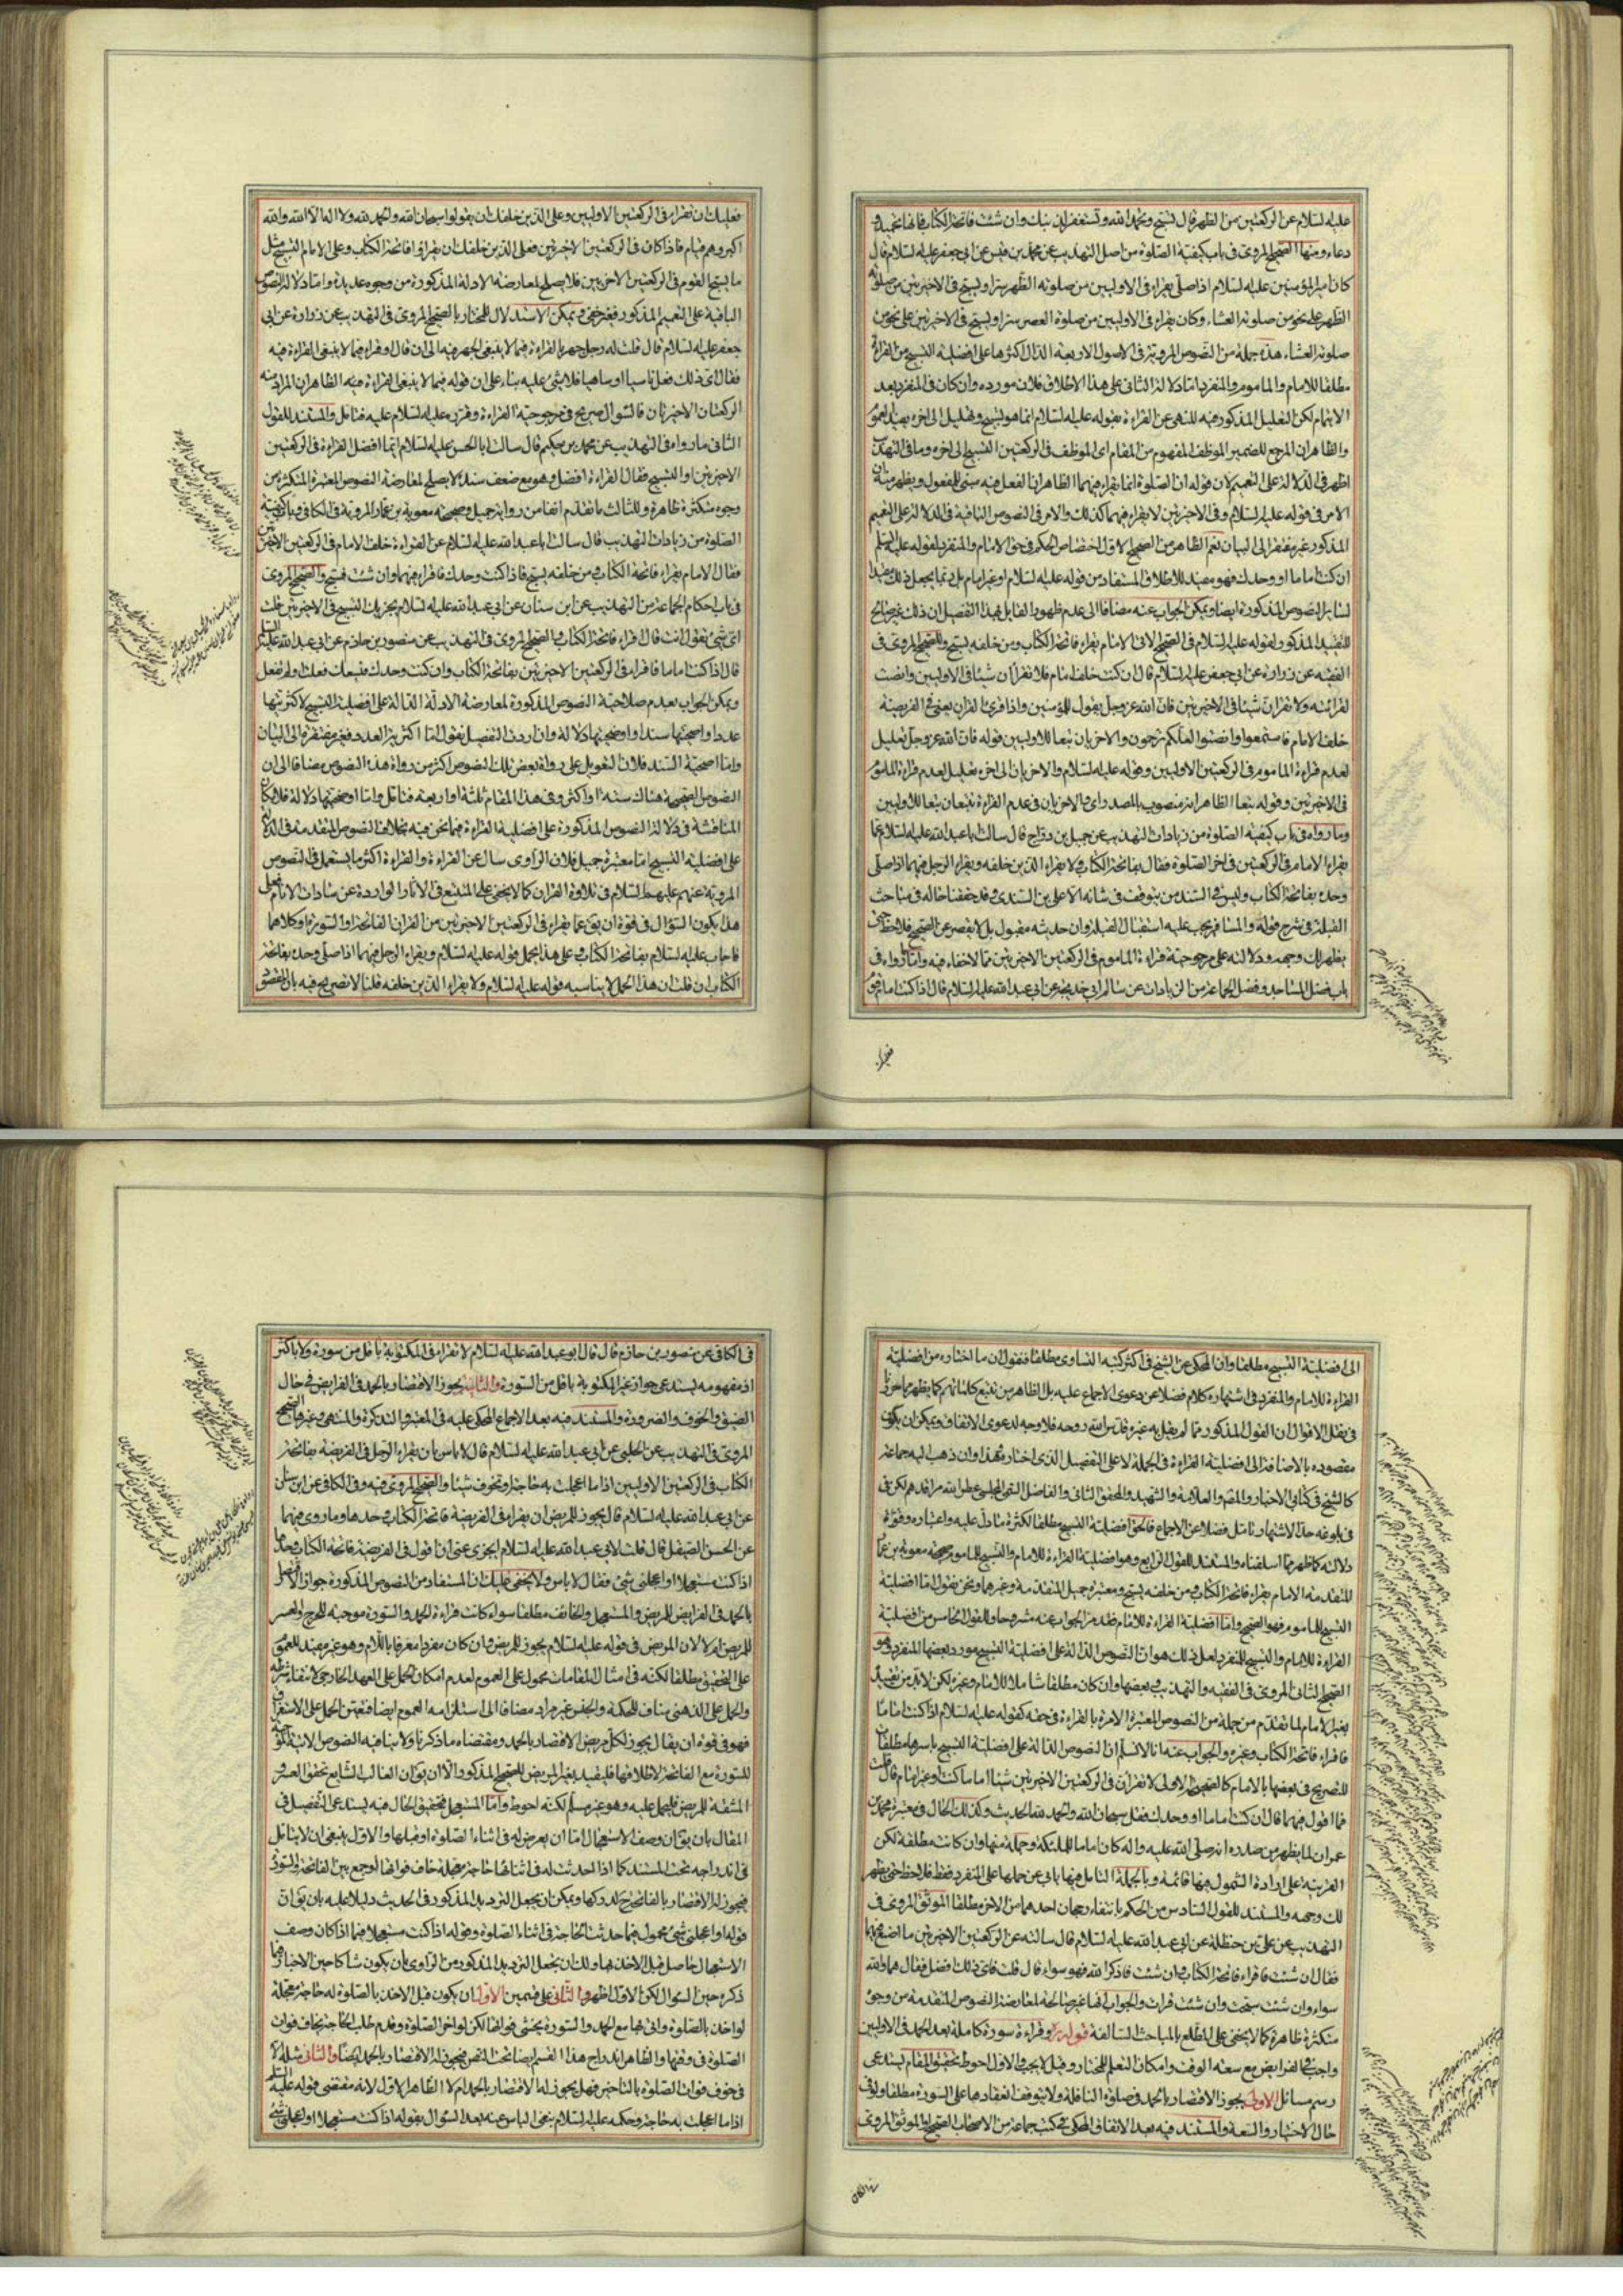 عليه السلام عن الركعتين من الظهر قال تسبح وتحمد الله وتستغفر لذنبك وان شئت فاتحة الكتاب فانها تحميد و
دعاء ومنها الصحيح المروي في باب كيفية الصلوة من اصل التهذيب عن محمد بن قيس عن ابي جعفر عليه السلام قال
كان امير المؤمنين عليه السلام اذا صلى يقراء في الاوليين من صلوته الظهر سرا ويسبح في الاخيرتين من صلوته
الظهر على نحو من صلوته العشاء وكان يقراء في الاوليين من صلوة العصر سرا ويسبح في الاخيرتين على نحو من
صلوته العشاء هذه جملة من النصوص المروية في الاصول الاربعة الدال اكثرها على افضلية التسبيح من القرائة
مطلقا للامام والماموم والمنفرد اما دلالة الثاني على هذا الاطلاق فلان مورده وان كان في المنفرد بعد
الايتمام لكن التعليل المذكور فيه للنهي عن القراءة بقوله عليه السلام انما هو تسبيح وتهليل الى اخره يفيد العموم
والظاهر ان المرجع للضمير الموظف المفهوم من المقام اي الموظف في الركعتين التسبيح الى اخره وما في التهذيب
اظهر في الدلالة على التعميم لان قوله ان الصلوة انما يقراء فيهما الظاهر ان الفعل فيه مبني للمفعول ويظهر منه ان
الامر في قوله عليه السلام وفي الاخيرتين لا يقراء فيهما كذلك والامر في النصوص الباقية في الدلالة على التعميم
المذكور غير مفتقر الى البيان نعم الظاهر من الصحيح الاول اختصاص الحكم في حق الامام والمنفرد لقوله عليه السلم
ان كنت اماما او وحدك فهو مقيد للاطلاق المستفاد من قوله عليه السلام او غير امام بل ربما يجعل ذلك مقيدا
لساير النصوص المذكورة ايضا ويمكن الجواب عنه مضافا الى عدم ظهور القايل بهذا التفصيل ان ذلك غير صالح
للتقييد المذكور لقوله عليه السلام في الصحيح الاتي الامام يقراء فاتحة الكتاب ومن خلفه يسبح وللصحيح المروي في
الفقيه عن زرارة عن ابي جعفر عليه السلام قال ان كنت خلف امام فلا تقرأن شيئا في الاوليين وانصت
لقرائته ولا تقرأن شيئا في الاخيرتين فان الله عز وجل يقول للمؤمنين واذا قرئ القران يعني في الفريضة
خلف الامام فاستمعوا له وانصتوا لعلكم ترحمون والاخريان تبعا للاوليين قوله فان الله عز وجل تعليل
لعدم قراءة الماموم في الركعتين الاوليين وقوله عليه السلام والاخريان الى اخره تعليل لعدم قراءة الماموم
في الاخيرتين وقوله تبعا الظاهر انه منصوب بالمصدر اي والاخريان في عدم القراءة تتبعان تبعا للاوليين
وما رواه في باب كيفية الصلوة من زيادات التهذيب عن جميل بن دراج قال سالت ابا عبد الله عليه السلام عما
يقراء الامام في الركعتين في اخر الصلوة فقال بفاتحة الكتاب ولا يقراء الذين خلفه ويقراء الرجل فيهما اذا صلى
وحده بفاتحة الكتاب وليس في السند من يتوقف في شانه الا علي بن السندي وقد حققنا حاله في مباحث
القبلة في شرح قوله والمسافر يجب عليه استقبال القبلة وان حديثه مقبول بل لا يقصر عن الصحيح فلاحظ حتى
يظهر لك وجهه ودلالته على مرجوحية قراءة الماموم في الركعتين الاخيرتين مما لا خفاء فيه واما ما رواه في
باب فضل المساجد وفضل الجماعة من الزيادات عن سالم ابي خديجة عن ابي عبد الله عليه السلام قال اذا كنت امام قوم
فعليك
فعليك ان تقراء في الركعتين الاوليين وعلى الذين خلفك ان يقولوا سبحان الله والحمد لله ولا اله الا الله والله
اكبر وهم قيام فاذا كان في الركعتين الاخيرتين فعلى الذين خلفك ان يقراؤا فاتحة الكتاب وعلى الامام التسبيح مثل
ما يسبح القوم في الركعتين الاخريين فلا يصلح لمعارضة الادلة المذكورة من وجوه عديدة واما دلالة النصوص
الباقية على التعميم المذكور فغير خفي ويمكن الاستدلال للمختار بالصحيح المروي في التهذيب عن زرارة عن ابي
جعفر عليه السلام قال قلت له رجل جهر بالقراءة فيما لا ينبغي الجهر فيه الى ان قال او قراء فيما لا ينبغي القراءة فيه
فقال اي ذلك فعل ناسيا او ساهيا فلا شئ عليه بناء على ان قوله فيما لا ينبغي القراءة فيه الظاهر ان المراد منه
الركعتان الاخيرتان فالسؤال صريح في مرجوحية القراءة وقرره عليه السلام عليه فتامل والمستند للقول
الثاني ما رواه في التهذيب عن محمد بن حكيم قال سالت ابا الحسن عليه السلام ايما افضل القراءة في الركعتين
الاخيرتين او التسبيح فقال القراءة افضل وهو مع ضعف سنده لا يصلح لمعارضة النصوص المعتبرة المتكثرة من
وجوه متكثرة ظاهرة وللثالث ما تقدم انفا من رواية جميل وصحيحة معوية بن عمار المروية في الكافي وباب كيفية
الصلوة من زيادات التهذيب قال سالت ابا عبد الله عليه السلام عن القراءة خلف الامام في الركعتين الاخيرتين
فقال الامام يقراء فاتحة الكتاب ومن خلفه يسبح فاذا كنت وحدك فاقراء فيهما وان شئت فسبح والصحيح المروي
في باب احكام الجماعة من التهذيب عن ابن سنان عن ابي عبد الله عليه السلام يجزيك التسبيح في الاخيرتين قلت
اي شئ تقول انت قال اقراء فاتحة الكتاب والصحيح المروي في التهذيب عن منصور بن حازم عن ابي عبد الله عليه السلم
قال اذا كنت اماما فاقراء في الركعتين الاخيرتين بفاتحة الكتاب وان كنت وحدك فيسعك فعلت او لم تفعل
ويمكن الجواب بعدم صلاحية النصوص المذكورة لمعارضة الادلة الدالة على افضلية التسبيح لاكثريتها
عددا واصحيتها سندا واوضحيتها دلالة وان اردت التفصيل نقول اما اكثرية العدد فغير مفتقرة الى البيان
واما اصحية السند فلان التعويل على رواة بعض تلك النصوص اكثر من رواة هذه النصوص مضافا الى ان
النصوص الصحيحة هناك ستة او اكثر وفي هذا المقام ثلثة او اربعة فتامل واما اوضحيتها دلالة فلامكان
المناقشة في دلالة النصوص المذكورة على افضلية القراءة فيما نحن فيه بخلاف النصوص المتقدمة في الدلالة
على افضلية التسبيح اما معتبرة جميل فلان الراوي سال عن القراءة والقراءة اكثر ما يستعمل في النصوص
المروية عنهم عليهم السلام في تلاوة القران كما لا يخفى على المتتبع في الاثار الواردة عن سادات الانام فعلى
هذا يكون السؤال في قوة ان يق عما يقراء في الركعتين الاخيرتين من القران الفاتحة او السورة او كلاهما
فاجاب عليه السلام بفاتحة الكتاب وعلى هذا يحمل قوله عليه السلام ويقراء الرجل فيهما اذا صلى وحده بفاتحة
الكتاب ان قلت ان هذا الحمل لا يناسبه قوله عليه السلام ولا يقراء الذين خلفه قلنا لا تصريح فيه بان المقصود
الى افضلية التسبيح مطلقا وان المحكي عن الشيخ في اكثر كتبه التساوي مطلقا فنقول ان ما اختاره من افضلية
القراءة للامام والمنفرد في اشتهاره كلام فضلا عن دعوى الاجماع عليه بل الظاهر من تتبع كلماتهم كما يظهر مما حررنا
في نقل الاقوال ان القول المذكور مما لم يقل به غيره قدس الله روحه فلا وجه لدعوى الاتفاق ويمكن ان يكون
مقصوده بالاضافة الى افضلية القراءة في الجملة لا على التفصيل الذي اختاره فهذا وان ذهب اليه جماعة
كالشيخ في كتابي الاخبار والمقنع والعلامة والشهيد والمحقق الثاني والفاضل التقي المجلسي عطر الله مراقدهم لكن في
في بلوغه حد الاشتهار تامل فضلا عن الاجماع فالحق افضلية التسبيح مطلقا لكثرة ما دل عليه واعتباره وقوة
دلالته كما ظهر مما اسلفناه والمستند للقول الرابع وهو افضلية القراءة للامام والتسبيح للماموم صحيحة معوية بن عمار
المتقدمة الامام يقراء فاتحة الكتاب ومن خلفه يسبح ومعتبرة جميل المتقدمة وغيرها ونحن نقول اما افضلية
التسبيح للماموم فهو الصحيح واما افضلية القراءة للامام فقد مر الجواب عنه مشروحا وللقول الخامس من افضلية
القراءة للامام والتسبيح للمنفرد لعل ذلك هو ان النصوص الدالة على افضلية التسبيح مورد بعضها المنفرد وهو
الصحيح الثاني المروي في الفقيه والتهذيب وبعضها وان كان مطلقا شاملا للامام وغيره لكن لابد من تقييده
بغير الامام لما تقدم من جملة من النصوص المعتبرة الامرة بالقراءة في حقه كقوله عليه السلام اذا كنت اماما
فاقراء فاتحة الكتاب وغيره والجواب عنه انا لا نسلم ان النصوص الدالة على افضلية التسبيح باسرها مطلقة
للتصريح في بعضها بالامام كالصحيح الاولى لا تقرأن في الركعتين الاخيرتين شيئا اماما كنت او غير امام قال قلت
فما اقول فيهما قال ان كنت اماما او وحدك فقل سبحان الله والحمد لله الحديث وكذلك الحال في معتبرة محمد بن
عمران لما يظهر من صدره انه صلى الله عليه واله كان اماما للملئكة وجملة منها وان كانت مطلقة لكن
القرينة على ارادة الشمول فيها قائمة وبالجملة التامل فيها يابى عن حملها على المنفرد فقط فلاحظ حتى يظهر
لك وجهه والمستند للقول السادس من الحكم بانتفاء رجحان احدهما من الاخر مطلقا الموثق المروي في
التهذيب عن علي بن حنظلة عن ابي عبد الله عليه السلام قال سالته عن الركعتين الاخيرتين ما اصنع فيهما
فقال ان شئت فاقراء فاتحة الكتاب وان شئت فاذكر الله فهو سواء قال قلت فاي ذلك افضل فقال هما والله
سواء ان شئت سبحت وان شئت قرات والجواب انها غير صالحة لمعارضة النصوص المتقدمة من وجوه
متكثرة ظاهرة كما لا يخفى على المطلع بالمباحث السالفة قوله وقراءة سورة كاملة بعد الحمد في الاوليين
واجب في الفرايض مع سعة الوقت وامكان التعلم للمختار وقيل لا يجب والاول احوط تحقيق المقام يستدعي
رسم مسائل الاولى يجوز الاقتصار بالحمد في صلوة النافلة ولا يتوقف انعقادها على السورة مطلقا ولو في
حال الاختيار والسعة والمستند فيه بعد الاتفاق المحكي في كتب جماعة من الاصحاب الصحيح او الموثق المروي
في الكافي
في الكافي عن منصور بن حازم قال قال ابو عبد الله عليه السلام لا تقراء في المكتوبة باقل من سورة ولا باكثر
اذ مفهومه يستدعي جواز غير المكتوبة باقل من السورة والثانية يجوز الاقتصار بالحمد في الفرايض في حال
الضيق والخوف والضرورة والمستند فيه بعد الاجماع المحكي عليه في المعتبر والتذكرة والمنتهى وغيرها الصحيح
المروي في التهذيب عن الحلبي عن ابي عبد الله عليه السلام قال لا باس بان يقراء الرجل في الفريضة بفاتحة
الكتاب في الركعتين الاوليين اذا ما اعجلت به حاجة او تخوف شيئا والصحيح المروي فيه وفي الكافي عن ابن سنان
عن ابي عبد الله عليه السلام قال يجوز للمريض ان يقراء في الفريضة فاتحة الكتاب وحدها وما روي فيهما
عن الحسن الصيقل قال قلت لابي عبد الله عليه السلام ايجزي عني ان اقول في الفريضة فاتحة الكتاب وحدها
اذا كنت مستعجلا او اعجلني شئ فقال لا باس ولا يخفى عليك ان المستفاد من النصوص المذكورة جواز الاقتصار
بالحمد في الفرايض للمريض والمستعجل والخائف مطلقا سواء كانت قراءة الحمد والسورة موجبة للحرج والعسر
للمريض ام لا لان المريض في قوله عليه السلام يجوز للمريض وان كان مفردا معرفا باللام وهو غير مفيد للعموم
على التحقيق مطلقا لكنه في امثال المقامات محمول على العموم لعدم امكان الحمل على العهد الخارجي لانتفاء شرطه
والحمل على الذهني مناف للحكمة والجنس غير مراد مضافا الى استلزامه العموم ايضا فتعين الحمل على الاستغراق
فهو في قوة ان يقال يجوز لكل مريض الاقتصار بالحمد ومقتضاه ما ذكرنا ولا ينافيه النصوص الاتية
للسورة مع الفاتحة لاطلاقها فليقيد بغير المريض للصحيح المذكور الا ان يق ان الغالب الشايع تحقق العسر و
المشقة للمريض فليحمل عليه وهو غير مسلم لكنه احوط واما المستعجل فتحقيق الحال فيه يستدعي التفصيل في
المقال بان يق ان وصف الاستعجال اما ان يعرض له في اثناء الصلوة او قبلها والاول ينبغي ان لا يتامل
في اندراجه تحت المستند كما اذا حدثت له في اثنائها حاجة معجلة خاف فواتها لو جمع بين الفاتحة والسورة
فيجوز له الاقتصار بالفاتحة ح لدركها ويمكن ان يجعل الترديد المذكور في الحديث دليلا عليه بان يق ان
قوله او اعجلني شئ محمول فيما حدثت الحاجة في اثناء الصلوة وقوله اذا كنت مستعجلا فيما اذا كان وصف
الاستعجال حاصلا قبل الاخذ بها ولك ان تجعل الترديد المذكور من الراوي بان يكون شاكا حين الاخبار فيما
ذكره حين السؤال لكن الاول اظهر والثاني على قسمين الاول ان يكون قبل الاخذ بالصلوة له حاجة معجلة
لو اخذ بالصلوة واتى بها مع الحمد والسورة يخشى فواتها لكن لو اخر الصلوة وقدم طلب الحاجة يخاف فوات
الصلوة في وقتها والظاهر اندراج هذا القسم ايضا تحت النص فيجوز له الاقتصار بالحمد ايضا والثاني مثله الا
في خوف فوات الصلوة بالتاخير فهل يجوز له الاقتصار بالحمد ام لا الظاهر الاول لانه مقتضى قوله عليه السلم
اذا ما اعجلت به حاجة وحكمه عليه السلام بنفي الباس عنه بعد السؤال بقوله اذا كنت مستعجلا او اعجلني شئ